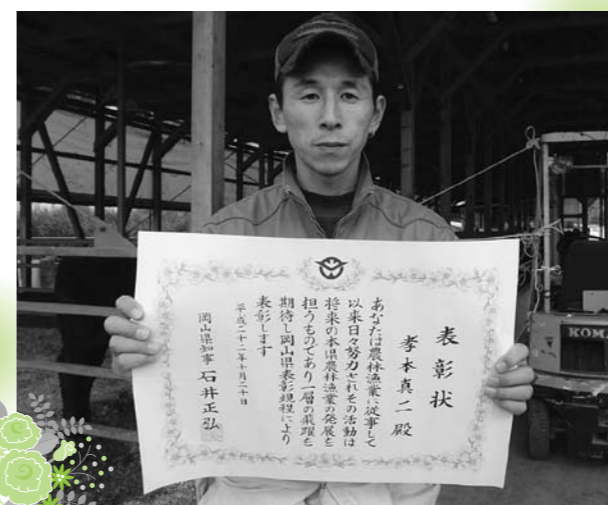 表彰状
孝本真二殿
あなたは農林漁業に従事して
以来日々努力されその活動は
将来の本県農林漁業の発展を
担うものであり一層の飛躍を
期待し岡山県表彰規程により
表彰します
平成二十二年十月二十日
岡山県知事 石井正弘
KOM